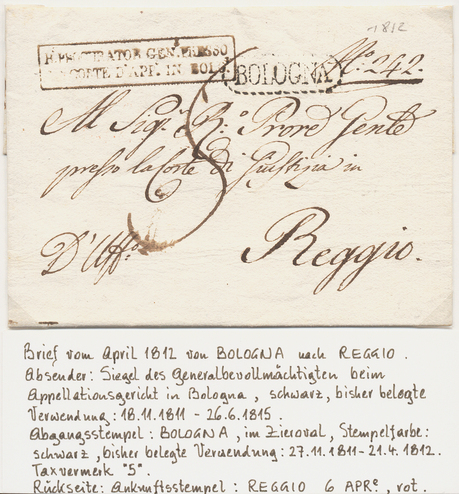 1812
R. PROCURATOR GEN. PRESSO
LA CORTE D'APP. IN BOLO
BOLOGNA
N.° 242.
5
Al Sig.r R.° Proc.e Gen.le
presso la Corte di Giustizia in
D'Uff.o
Reggio.
Brief vom April 1812 von BOLOGNA nach REGGIO.
Absender: Siegel des Generalbevollmächtigten beim
Appellationsgericht in Bologna, schwarz, bisher belegte
Verwendung: 18.11.1811 - 26.6.1815.
Abgangsstempel: BOLOGNA, im Zieroval, Stempelfarbe:
schwarz, bisher belegte Verwendung: 27.11.1811 - 21.4.1812.
Taxvermerk "5".
Rückseite: Ankunftsstempel: REGGIO 6 APRE, rot.